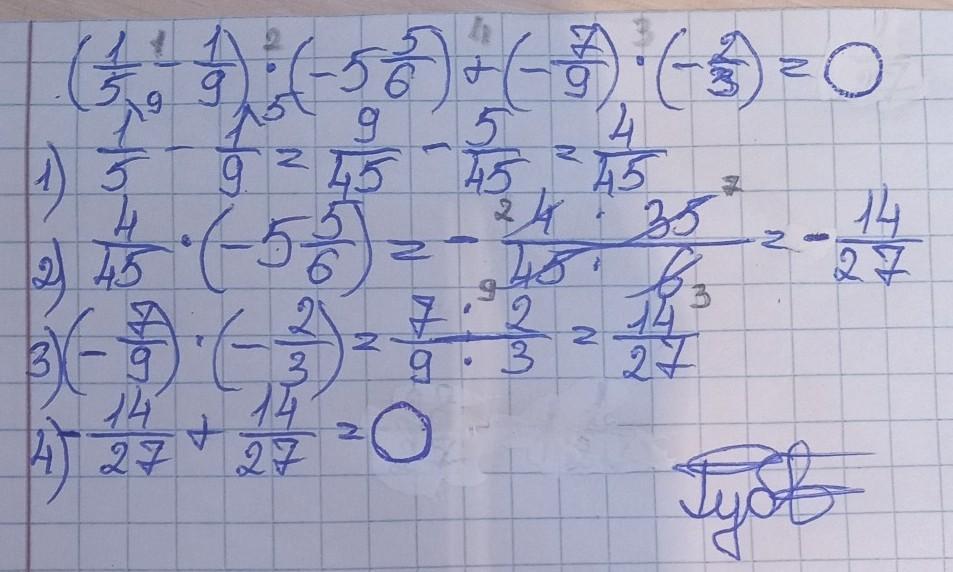 (1/5 - 1/9) · (-5 5/6) + (-7/9) · (-2/3) = 0
1) 1/5 - 1/9 = 9/45 - 5/45 = 4/45
2) 4/45 · (-5 5/6) = - 4 · 35 / 45 · 6 = - 14/27
3) (-7/9) · (-2/3) = 7 · 2 / 9 · 3 = 14/27
4) - 14/27 + 14/27 = 0